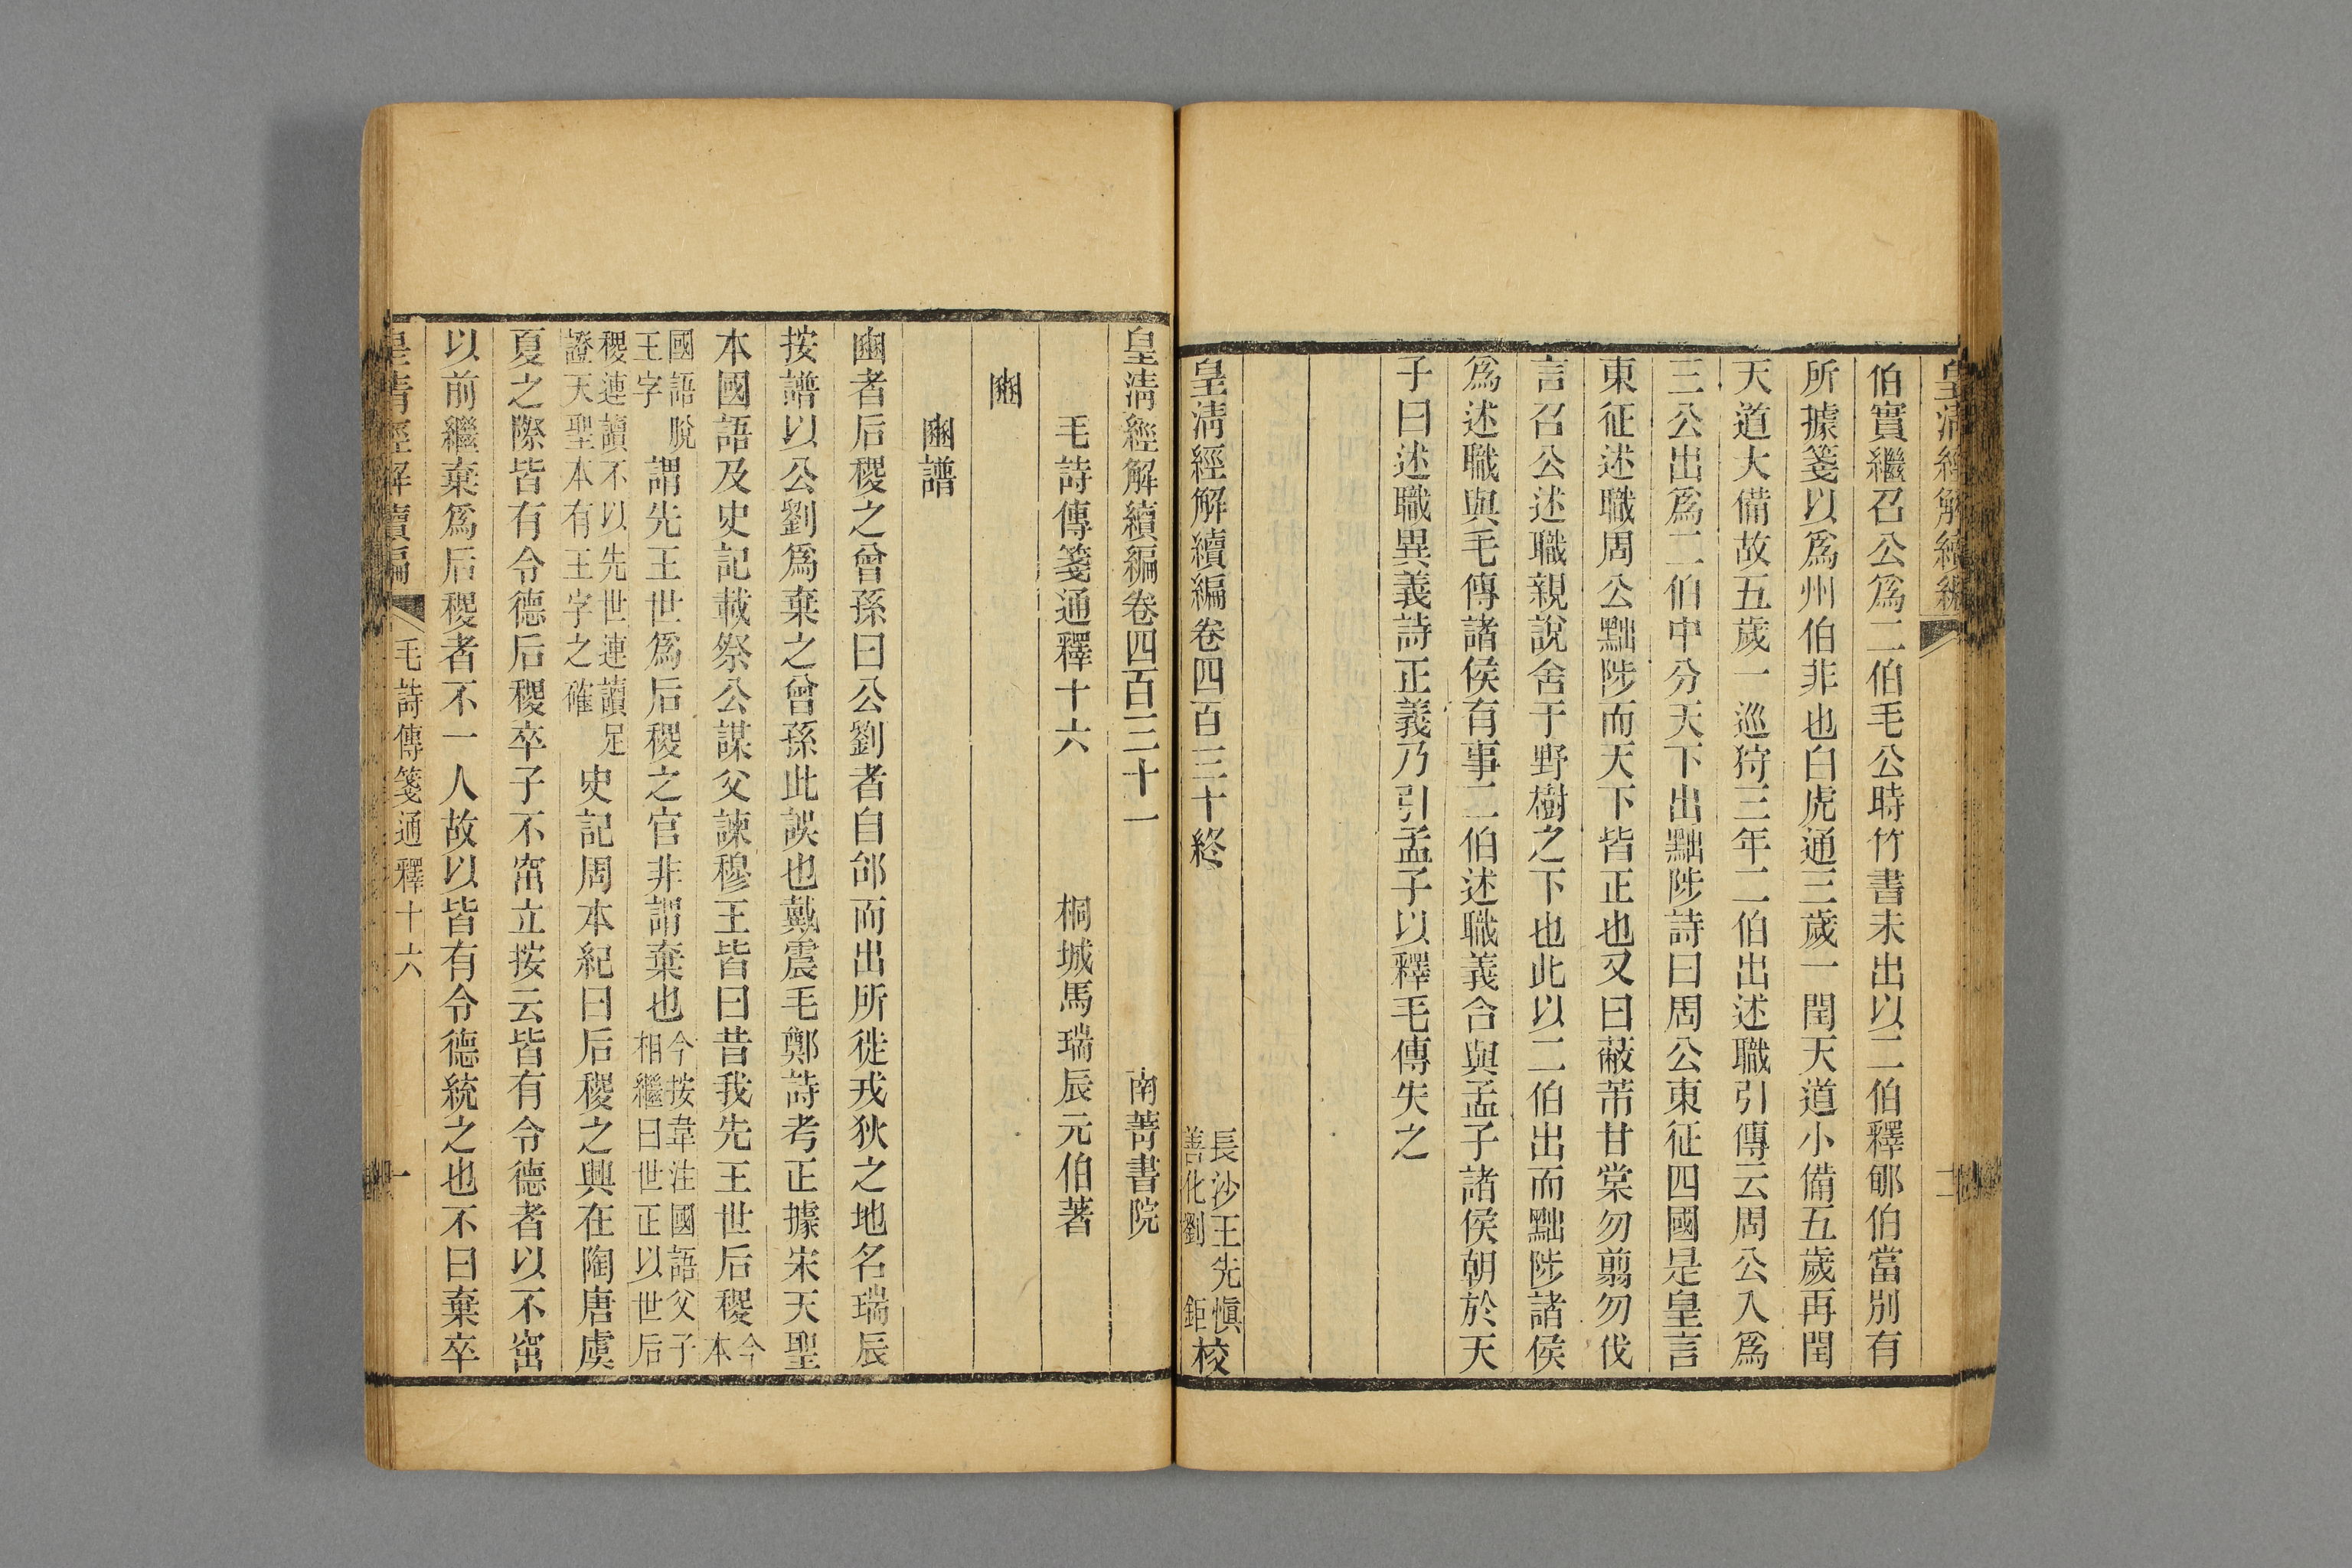 皇清經解續編
二
伯實繼召公爲二伯毛公時竹書未出以二伯釋郇伯當別有
所據箋以爲州伯非也白虎通三歲一閏天道小備五歲再閏
天道大備故五歲一巡狩三年二伯出述職引傳云周公入爲
三公出爲二伯中分天下出黜陟詩曰周公東征四國是皇言
東征述職周公黜陟而天下皆正也又曰蔽芾甘棠勿翦勿伐
言召公述職親說舍于野樹之下也此以二伯出而黜陟諸侯
爲述職與毛傳諸侯有事二伯述職義合與孟子諸侯朝於天
子曰述職異義詩正義乃引孟子以釋毛傳失之
皇清經解續編卷四百三十終
長沙王先愼
善化劉鉅校
皇清經解續編卷四百三十一
南菁書院
毛詩傳箋通釋十六
桐城馬瑞辰元伯著
豳
豳譜
豳者后稷之曾孫曰公劉者自邰而出所徙戎狄之地名瑞辰
按譜以公劉爲棄之曾孫此誤也戴震毛鄭詩考正據宋天聖
本國語及史記載祭公謀父諫穆王皆曰昔我先王世后稷今本
國語脫王字謂先王世爲后稷之官非謂棄也今按韋注國語父子相繼曰世正以世后
稷連讀不以先世連讀足證天聖本有王字之確史記周本紀曰后稷之興在陶唐虞
夏之際皆有令德后稷卒子不窋立按云皆有令德者以不窋
以前繼棄爲后稷者不一人故以皆有令德統之也不曰棄卒
皇清經解續編
毛詩傳箋通釋十六
一